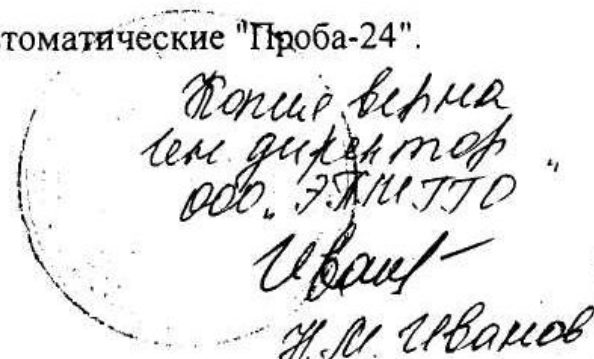 томатические "Проба-24".
Копия верна
Ген. директор
ООО "ЭТНИТТО"
Н.М. Иванов